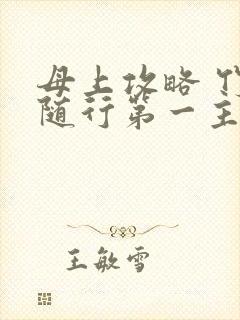 母上攻略
随行第一主
王敏雪